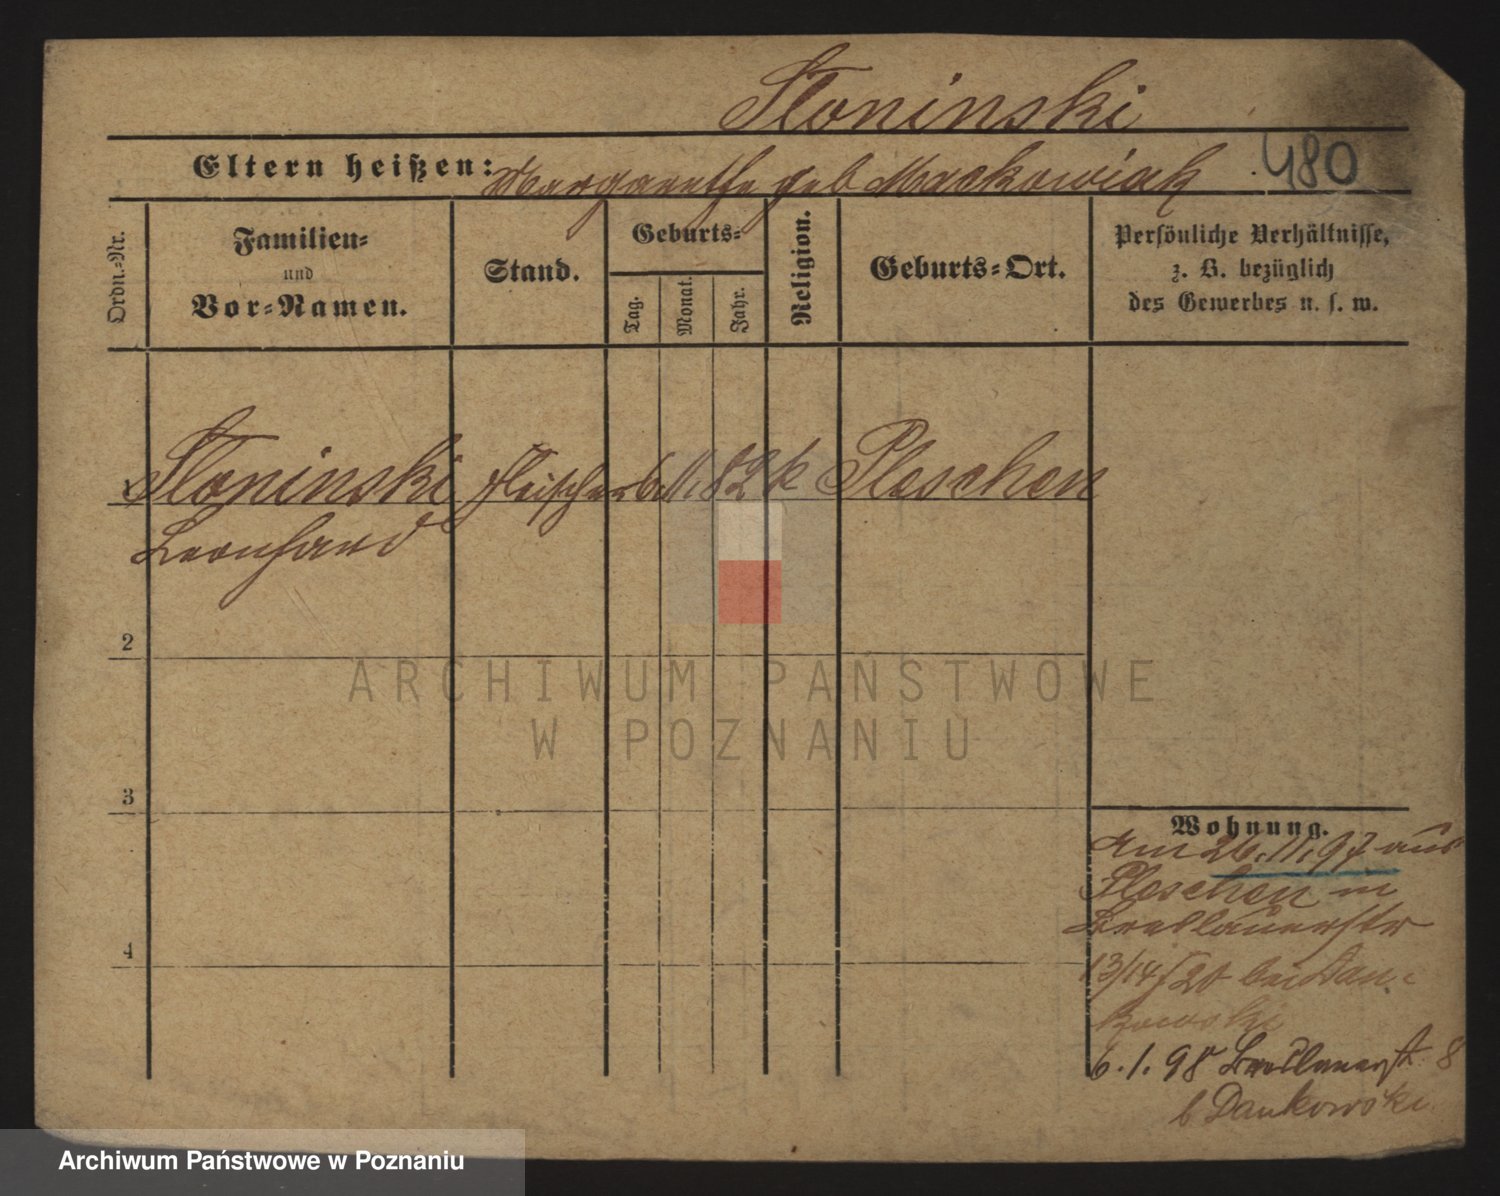 Sloninski
Eltern heißen: Margarethe geb Mackowiak
480
Ordn.-Nr.
Familien-
und
Vor-Namen.
Stand.
Geburts-
Tag.
Monat.
Jahr.
Religion.
Geburts-Ort.
Persönliche Verhältnisse,
z. B. bezüglich
des Gewerbes u. s. w.
1 Sloninski Fleischer 6. 11. 82 k Pleschen
Leonhard
2
3
4
Wohnung.
Am 26.11.97 aus
Pleschen in
Breslauerstr
13/14 bei Dan-
kowski
6.1.98 Breslauerst 8
b Dankowski
ARCHIWUM PAŃSTWOWE
W POZNANIU
Archiwum Państwowe w Poznaniu